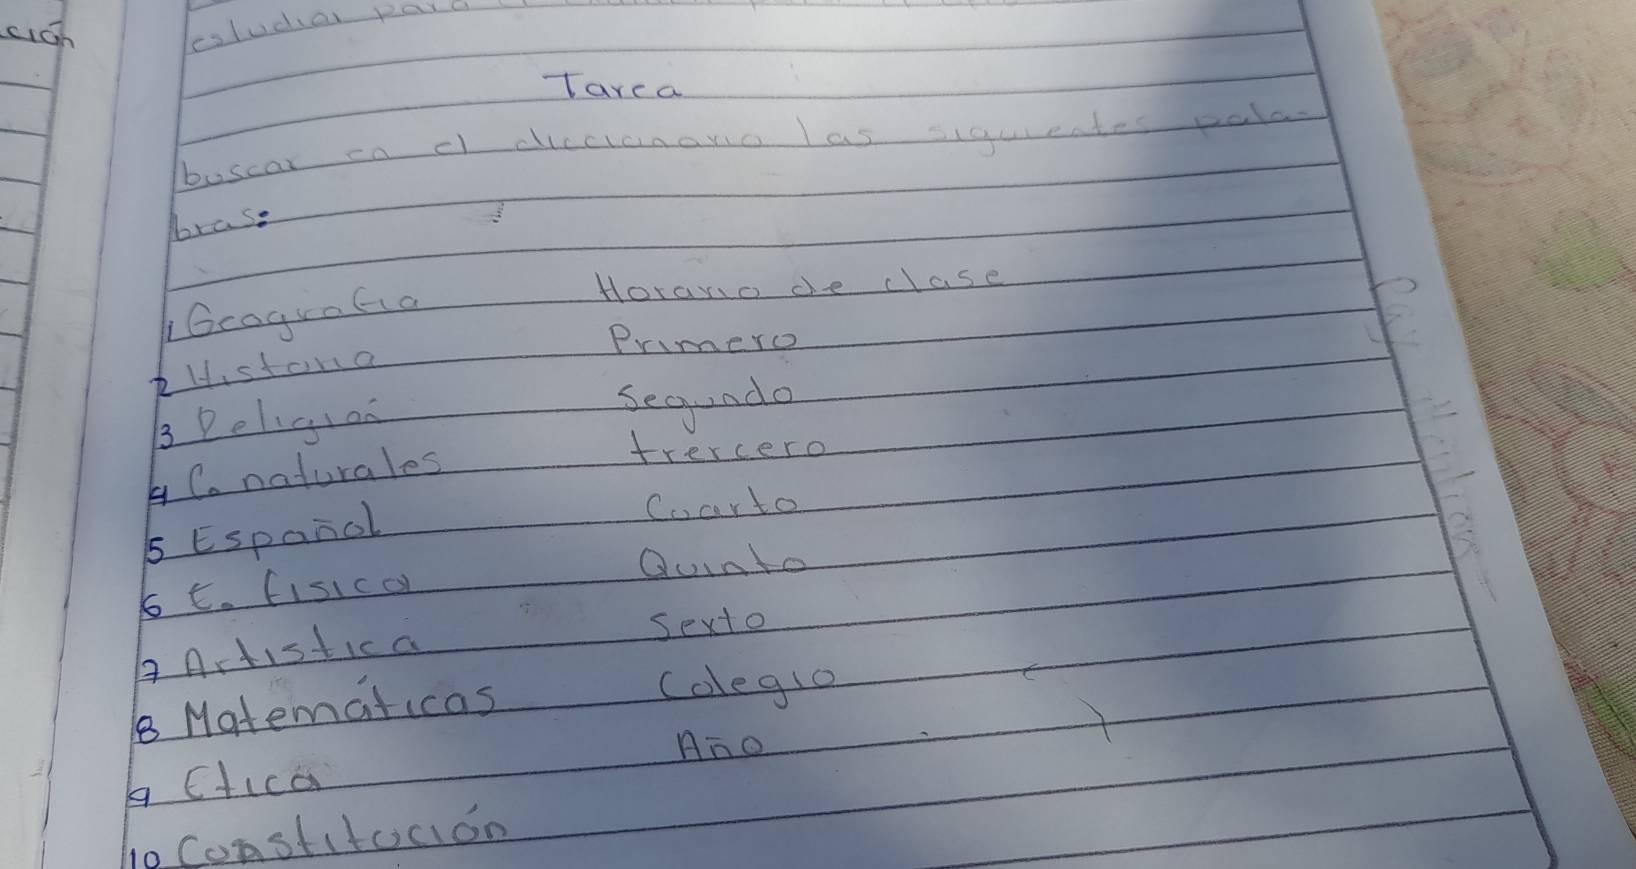 ción
estudiar para
Tarea
buscar en el diccionario las siguientes pala-
bras:
1 Geografia Horario de clase
2 Historia Primero
3 Religion Segundo
4 C. naturales trercero
5 Español Cuarto
6 E. fisica Quinto
7 Artistica Sexto
8 Matemáticas Colegio
9 Etica Año
10 Constitución